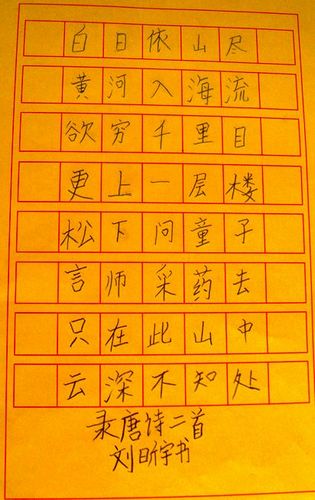 白日依山尽
黄河入海流
欲穷千里目
更上一层楼
松下问童子
言师采药去
只在此山中
云深不知处
录唐诗二首
刘昕宇书